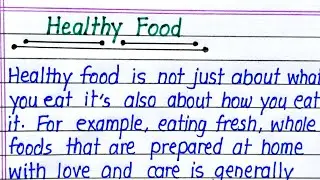 Healthy Food
Healthy food is not just about what
you eat it's also about how you eat
it. For example, eating fresh, whole
foods that are prepared at home
with love and care is generally